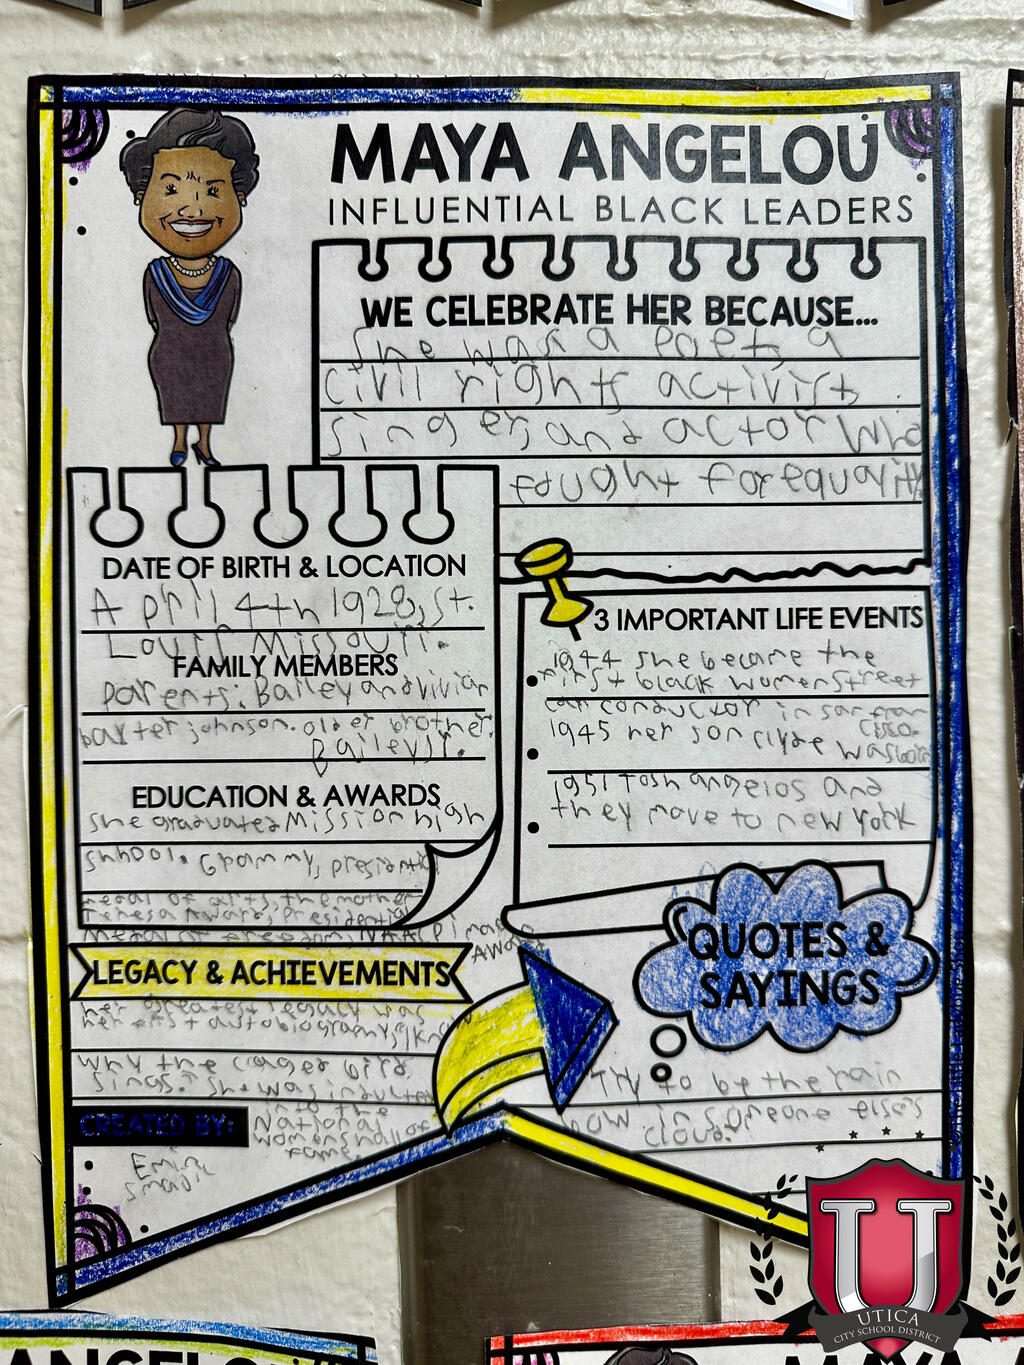 MAYA ANGELOU
INFLUENTIAL BLACK LEADERS
WE CELEBRATE HER BECAUSE...
She was a poet, a
civil rights activist
singer, and actor who
fought for equality
DATE OF BIRTH & LOCATION
April 4th 1928, St.
Louis Missouri.
FAMILY MEMBERS
parents: Bailey and vivian
baxter johnson. older brother,
Bailey Jr.
EDUCATION & AWARDS
she graduated Mission high
shhool. Grammy, presidential
medal of arts, the mother
Teresa Award, Presidential
medal of freedom, NAACP image
AWard
3 IMPORTANT LIFE EVENTS
1944 she became the
first black women street
car conductor in san fran
cisco.
1945 her son clyde was born
1951 Tosh angelos and
they move to new york
LEGACY & ACHIEVEMENTS
her greatest legacy was
her autobiography, I know
why the caged bird
sings. She was inducted
into the
National
womens hall of
fame.
QUOTES &
SAYINGS
Try to be the rain
bow in someone else's
cloud.
CREATED BY:
U
UTICA
CITY SCHOOL DISTRICT
ANGELOU
MAYA A